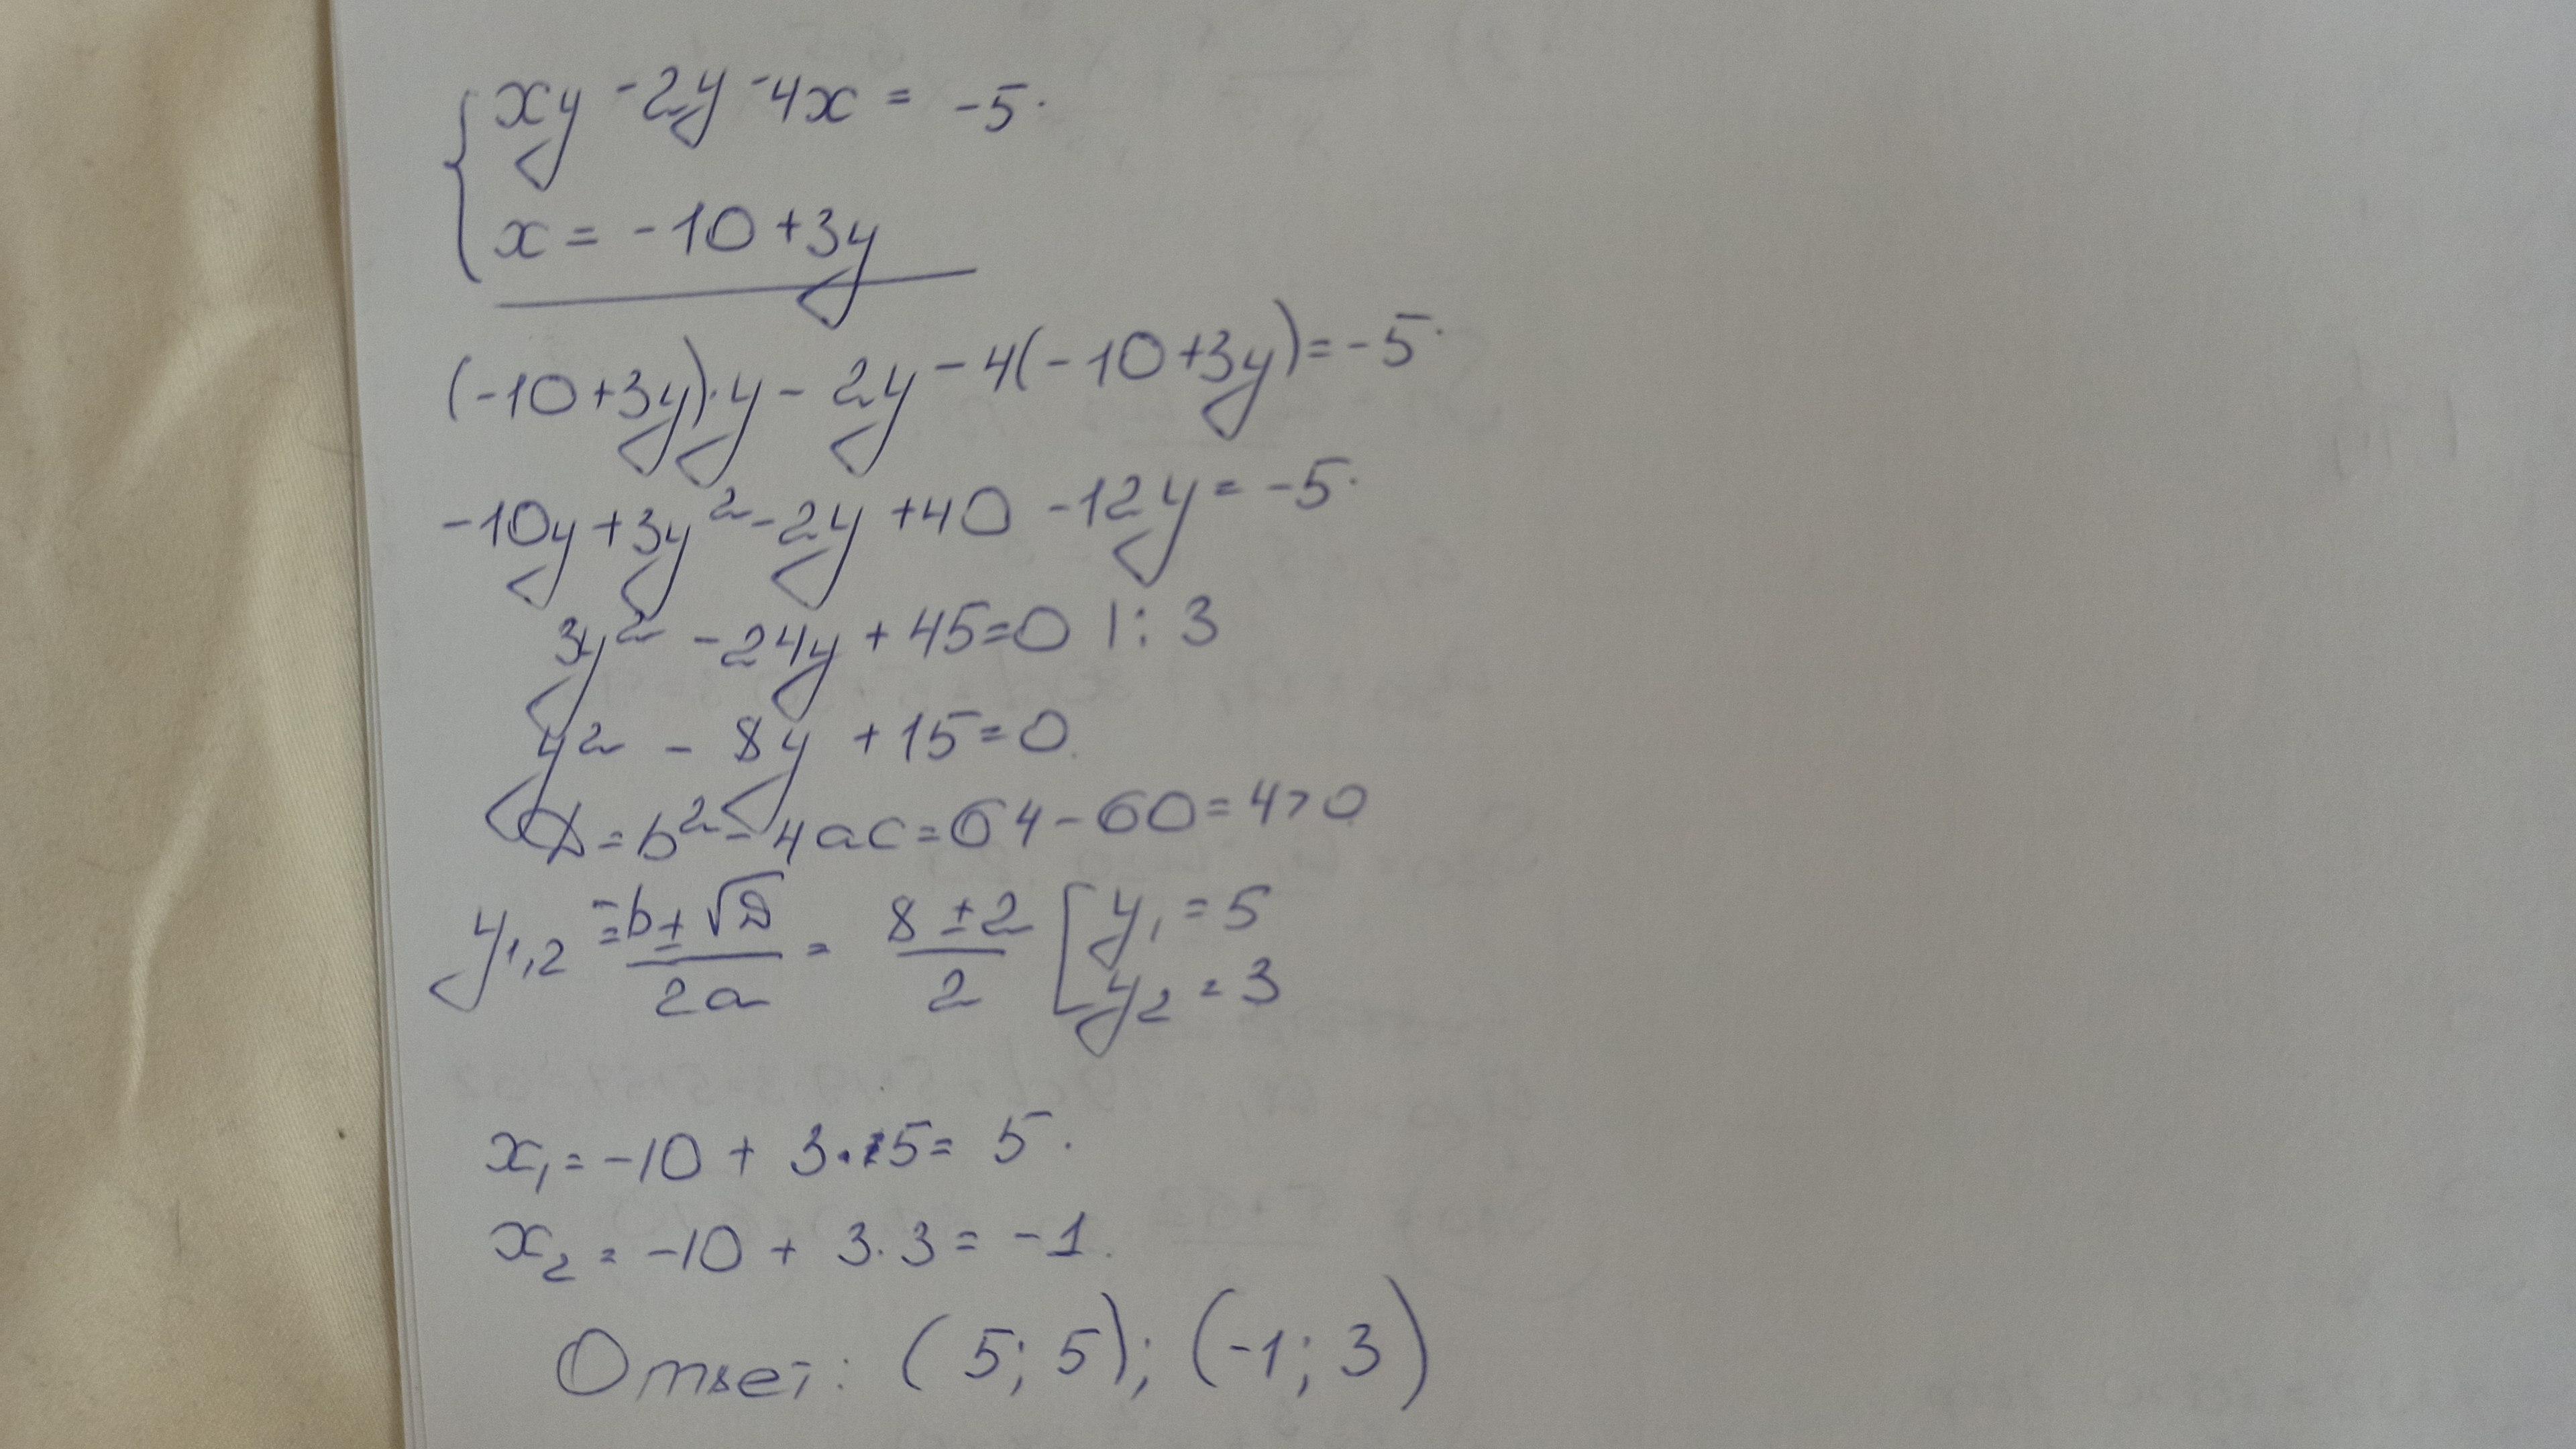 { xy - 2y - 4x = -5.
x = -10 + 3y
(-10 + 3y)·y - 2y - 4(-10 + 3y) = -5.
-10y + 3y² - 2y + 40 - 12y = -5.
3y² - 24y + 45 = 0 |: 3
y² - 8y + 15 = 0.
D = b² - 4ac = 64 - 60 = 4 > 0
y₁,₂ = (-b ± √D)/(2a) = (8 ± 2)/2 [ y₁ = 5
y₂ = 3
x₁ = -10 + 3·5 = 5.
x₂ = -10 + 3·3 = -1.
Ответ: (5; 5); (-1; 3)